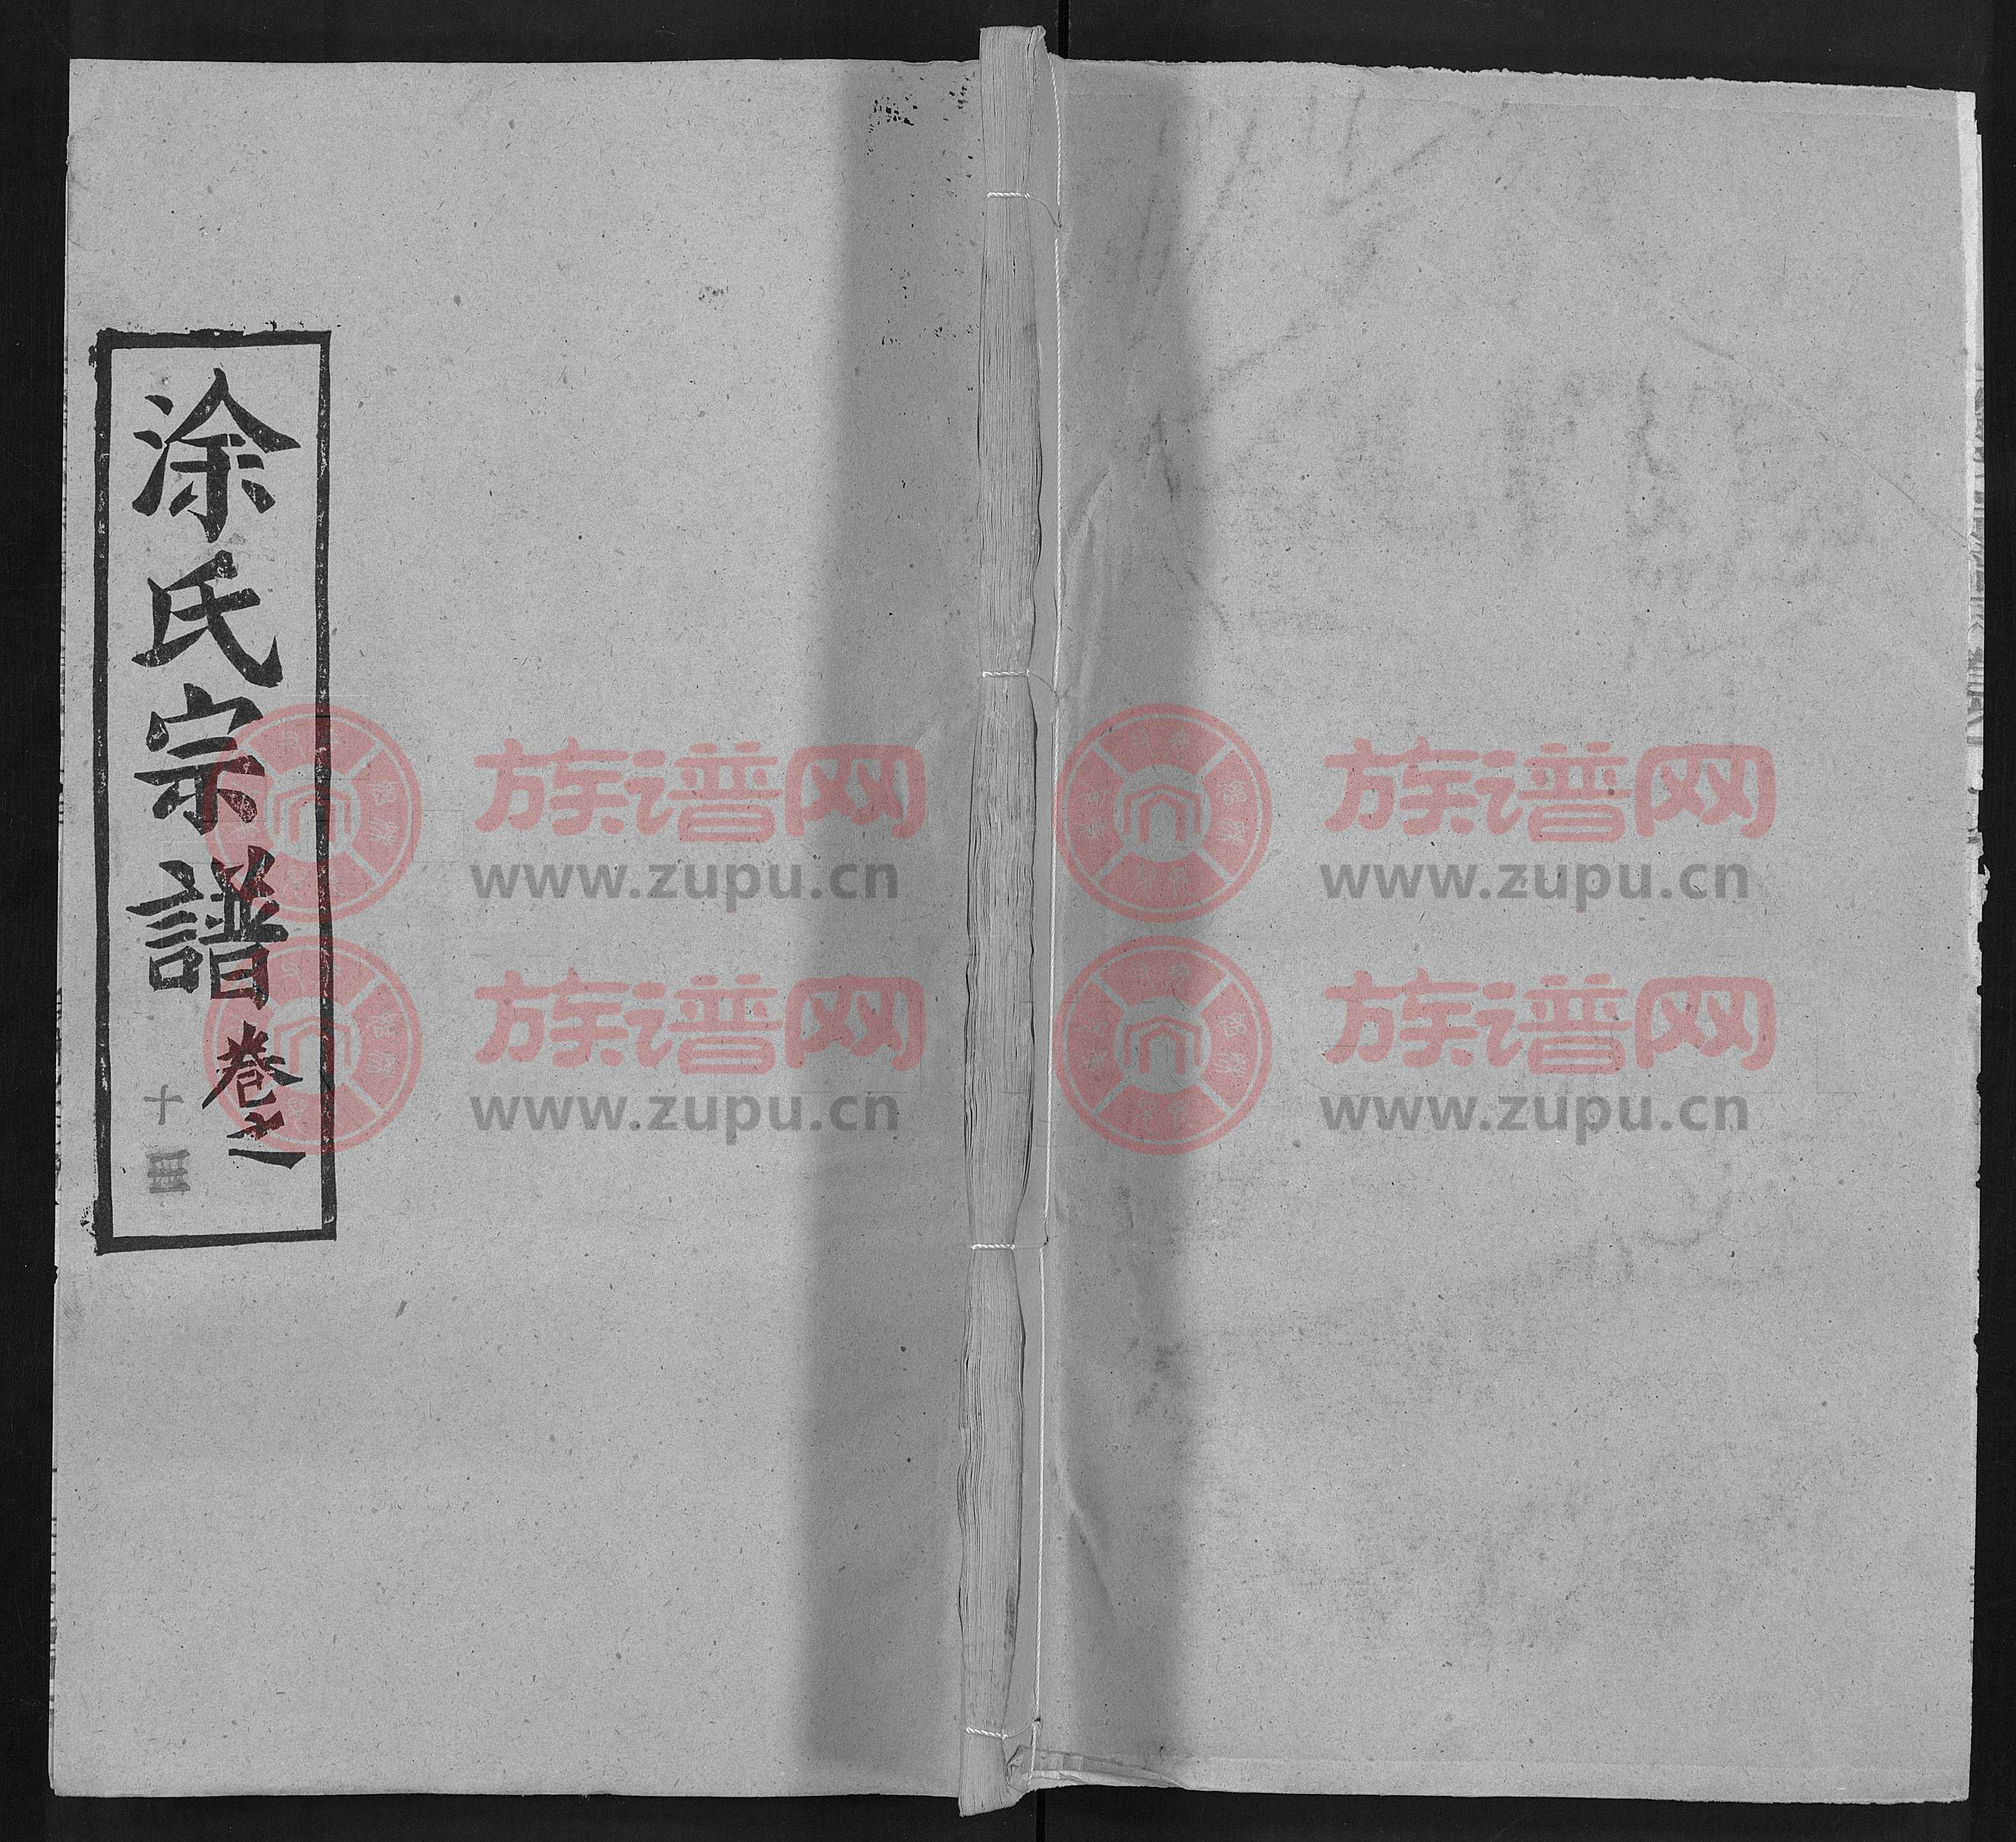 涂氏宗譜
卷之一
十
族谱网
www.zupu.cn
族谱网
www.zupu.cn
族谱网
www.zupu.cn
族谱网
www.zupu.cn